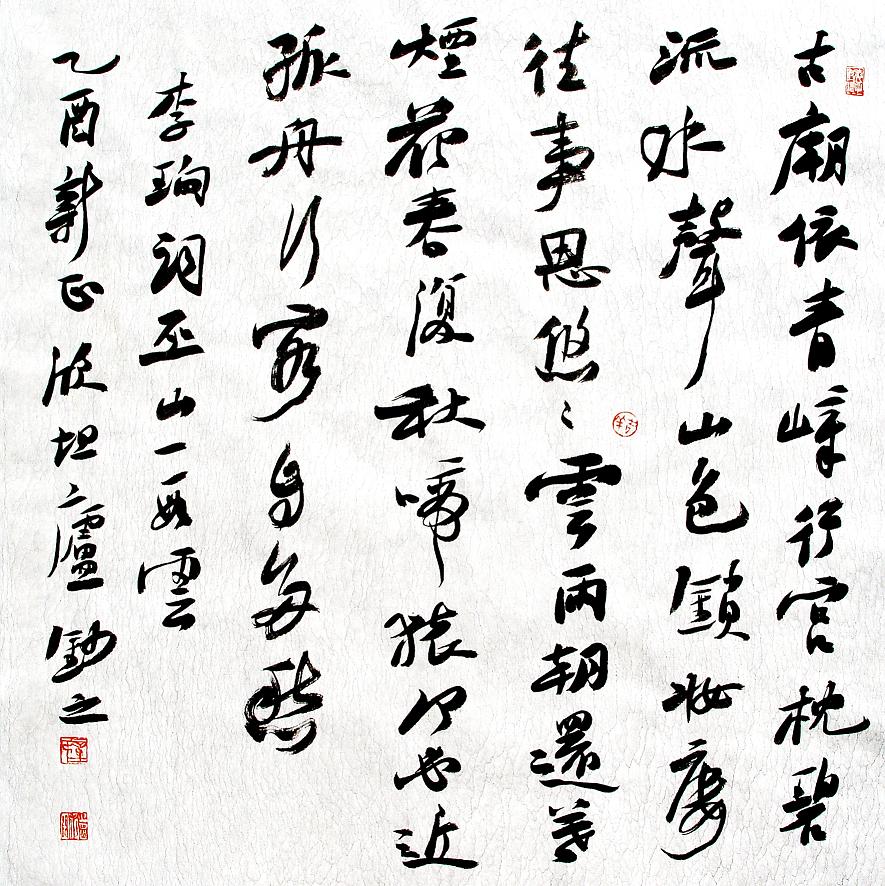 古廟依青嶂行宮枕碧
流水聲山色鎖妝樓
往事思悠々雲雨朝還暮
煙花春復秋啼猿何必近
孤舟行客自多愁
李珣詞巫山一段雲
乙酉新正 於坦々廬 勁之